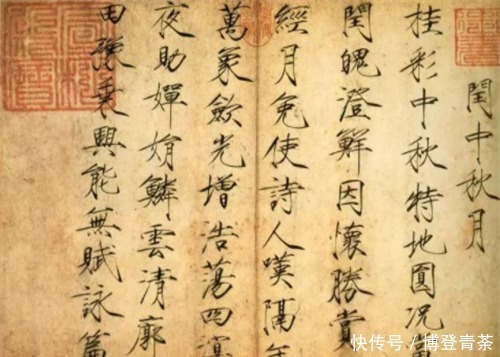 閏中秋月
桂彩中秋特地圓況
閏魄澄鮮因懷勝賞
經月免使詩人嘆隔年
萬象斂光增浩蕩四溟
夜助嬋娟鱗雲清廓
田豫乘興能無賦詠篇
快传号/博登青茶